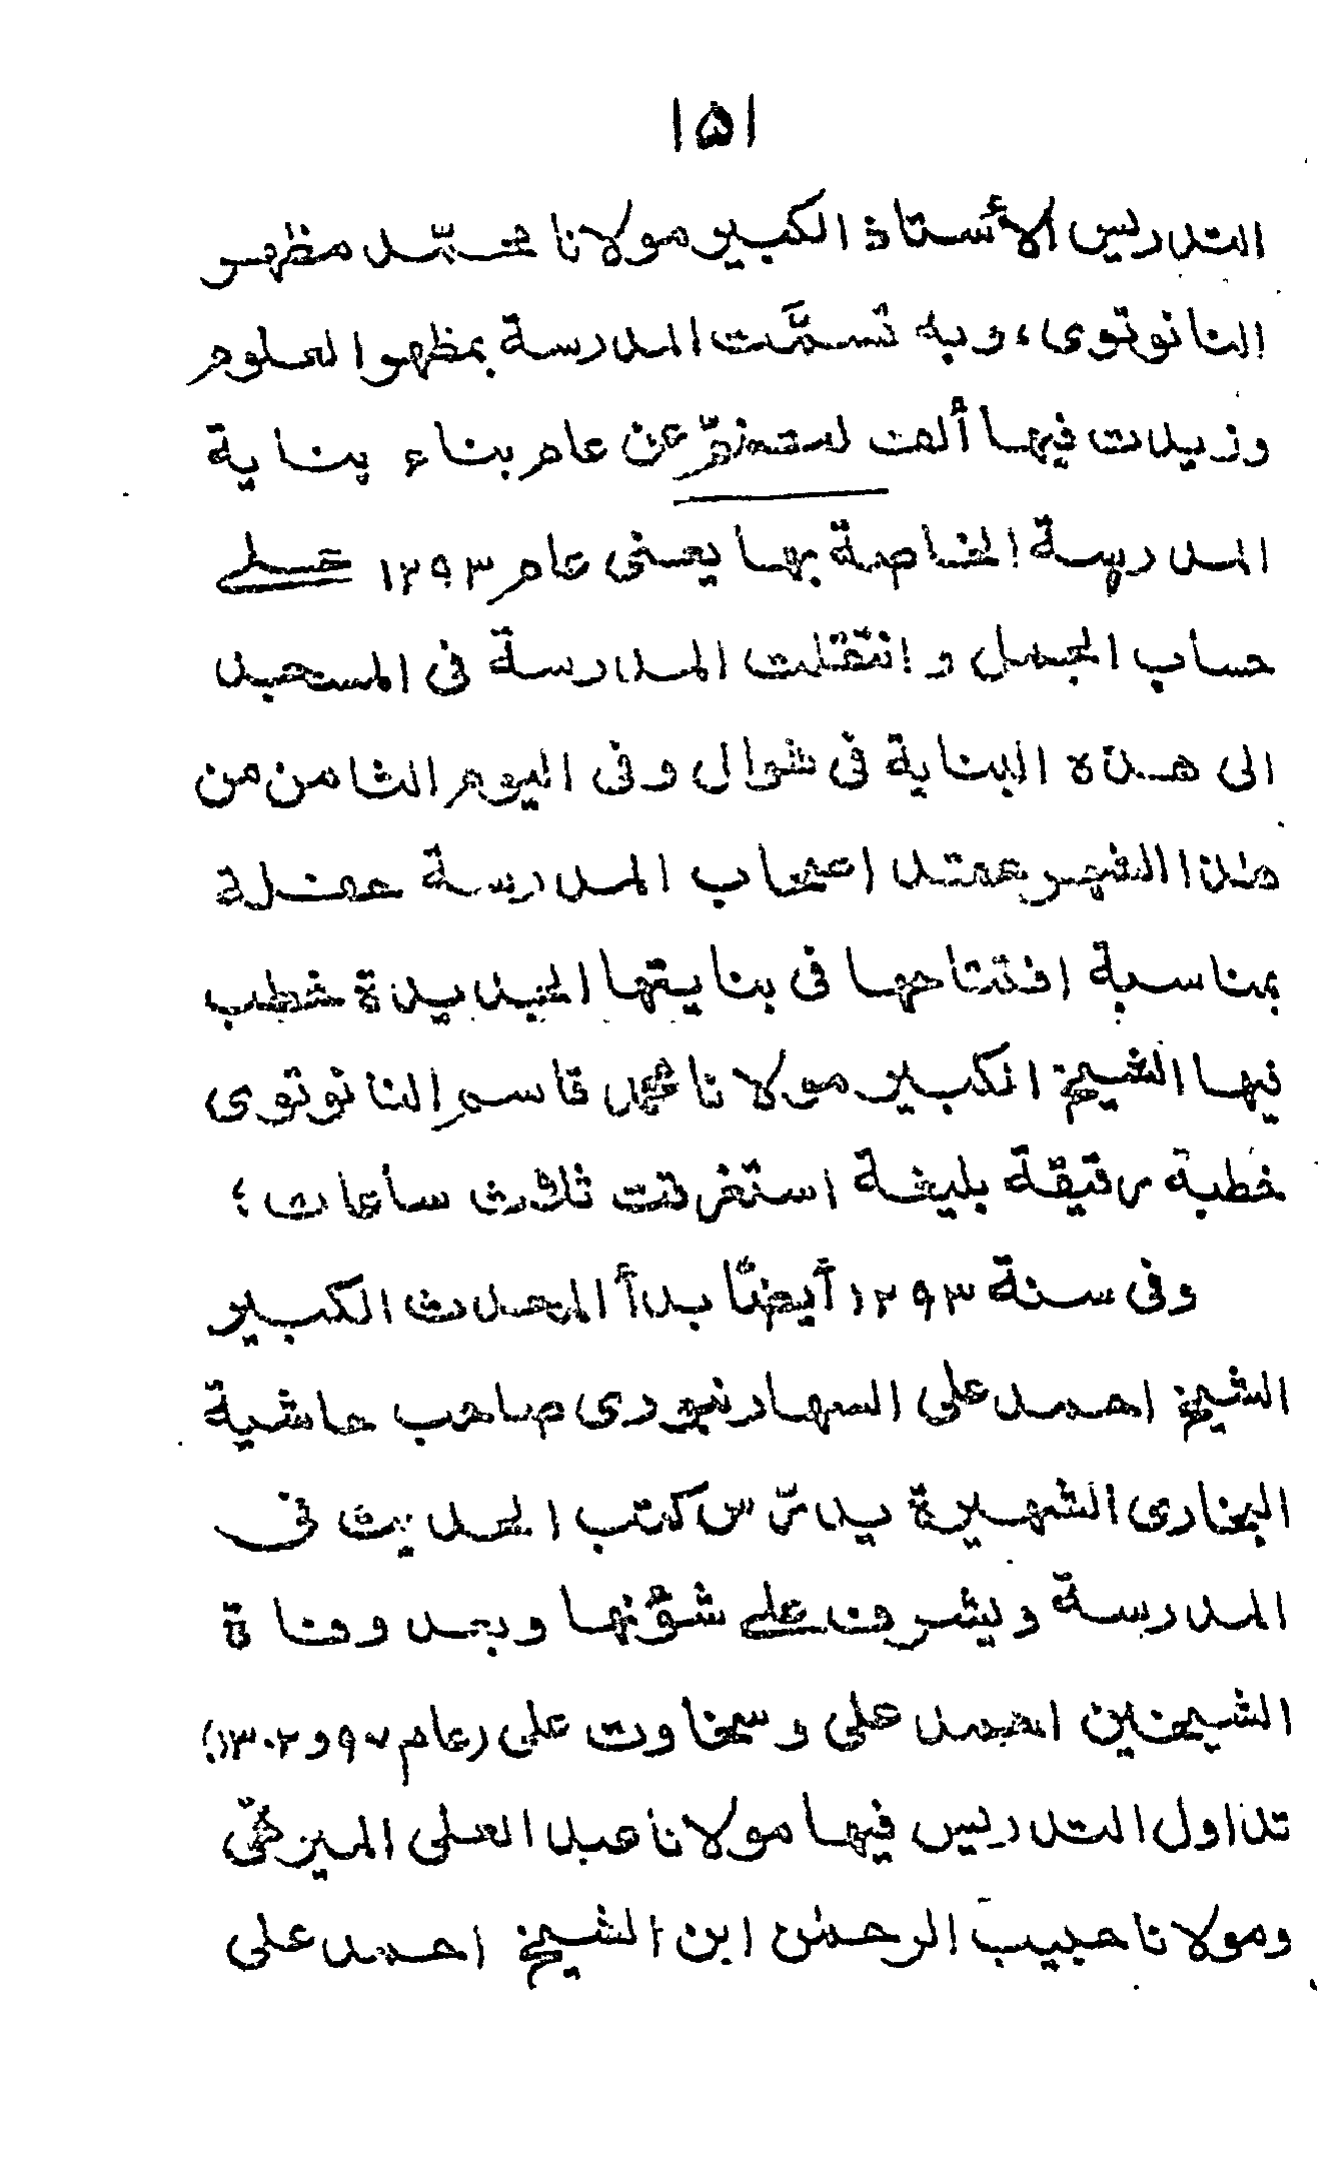 ١٥١
التدريس الأستاذ الكبير مولانا محمّد مظهر
النانوتوى، وبه تسمَّت المدرسة بمظهر العلوم
وزيدت فيها ألف لستخرّ عن عام بناء بناية
المدرسة الخاصة بها يعنى عام ١٢٩٣ على
حساب الجمل وانتقلت المدرسة فى المسجد
الى هذه البناية فى شوال وفى اليوم الثامن من
هذا الشهر عقد اصحاب المدرسة حفلة
بمناسبة افتتاحها فى بنايتها الجديدة خطب
فيها الشيخ الكبير مولانا محمد قاسم النانوتوى
خطبة رقيقة بليغة استغرقت ثلاث ساعات؛
وفى سنة ١٢٩٣ أيضًا بدأ المحدث الكبير
الشيخ احمد على السهارنبورى صاحب حاشية
البخارى الشهيرة يدرّس كتب الحديث فى
المدرسة ويشرف على شؤنها وبعد وفاة
الشيخين احمد على وسخاوت على (عام ٩٧ و١٣٠٢)
تداول التدريس فيها مولانا عبد العلى الميرتهى
ومولانا حبيب الرحمن ابن الشيخ احمد على